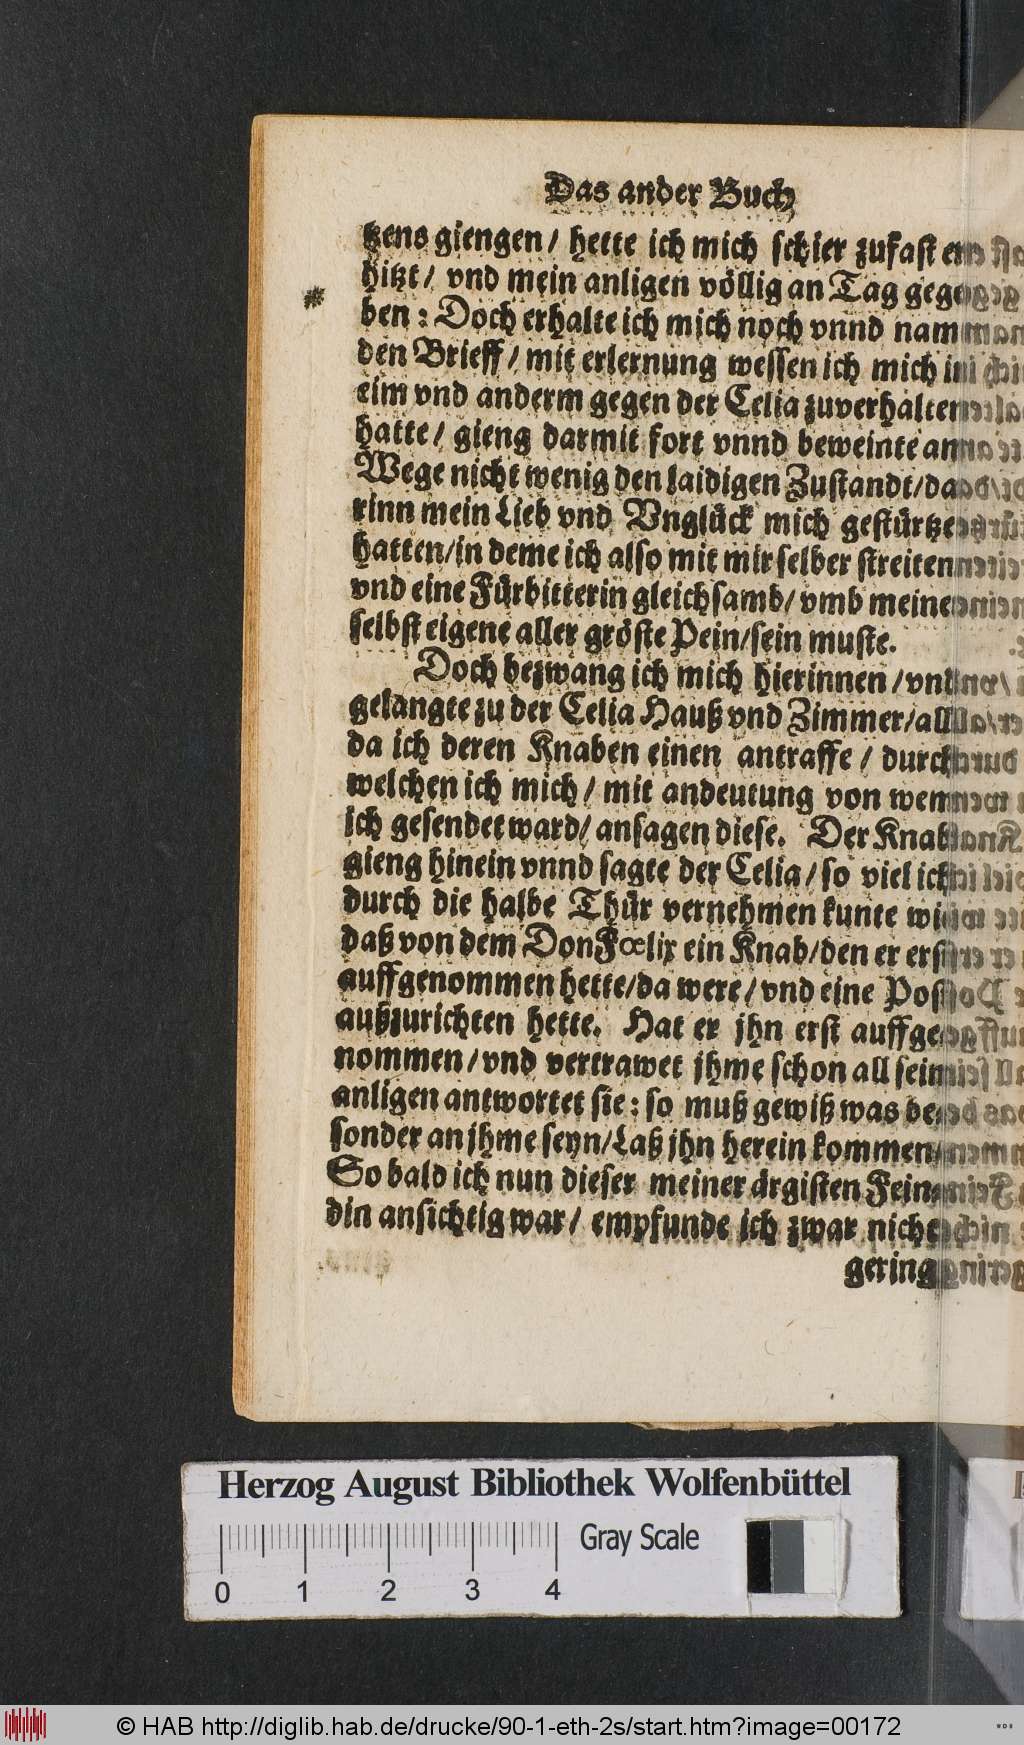 Das ander Buch
tzens giengen / hette ich mich schier zufast er-
hitzt / vnd mein anligen völlig an Tag gege-
ben : Doch erhalte ich mich noch vnnd nam
den Brieff / mit erlernung wessen ich mich in
eim vnd anderm gegen der Celia zuverhalten
hatte / gieng darmit fort vnnd beweinte am
Wege nicht wenig den laidigen Zustandt / da-
rinn mein Lieb vnd Vnglück mich gestürtzet
hatten / in deme ich also mit mir selber streiten
vnd eine Fürbitterin gleichsamb / vmb meine
selbst eigene aller gröste Pein / sein muste.
Doch bezwang ich mich hierinnen / vnd
gelangte zu der Celia Hauß vnd Zimmer / all
da ich deren Knaben einen antraffe / durch
welchen ich mich / mit andeutung von wem
ich gesendet ward / ansagen liese. Der Knab
gieng hinein vnnd sagte der Celia / so viel ich
durch die halbe Thür vernehmen kunte wie
daß von dem Don Fœlix ein Knab / den er erst
auffgenommen hette / da were / vnd eine Post
außzurichten hette. Hat er jhn erst auffge-
nommen / vnd vertrawet jhme schon all sein
anligen antwortet sie : so muß gewiß was be-
sonder an jhme seyn / Laß jhn herein kommen /
So bald ich nun dieser meiner ärgisten Fein-
din ansichtig war / empfunde ich zwar nicht
gering
Herzog August Bibliothek Wolfenbüttel
0 1 2 3 4 Gray Scale
© HAB http://diglib.hab.de/drucke/90-1-eth-2s/start.htm?image=00172